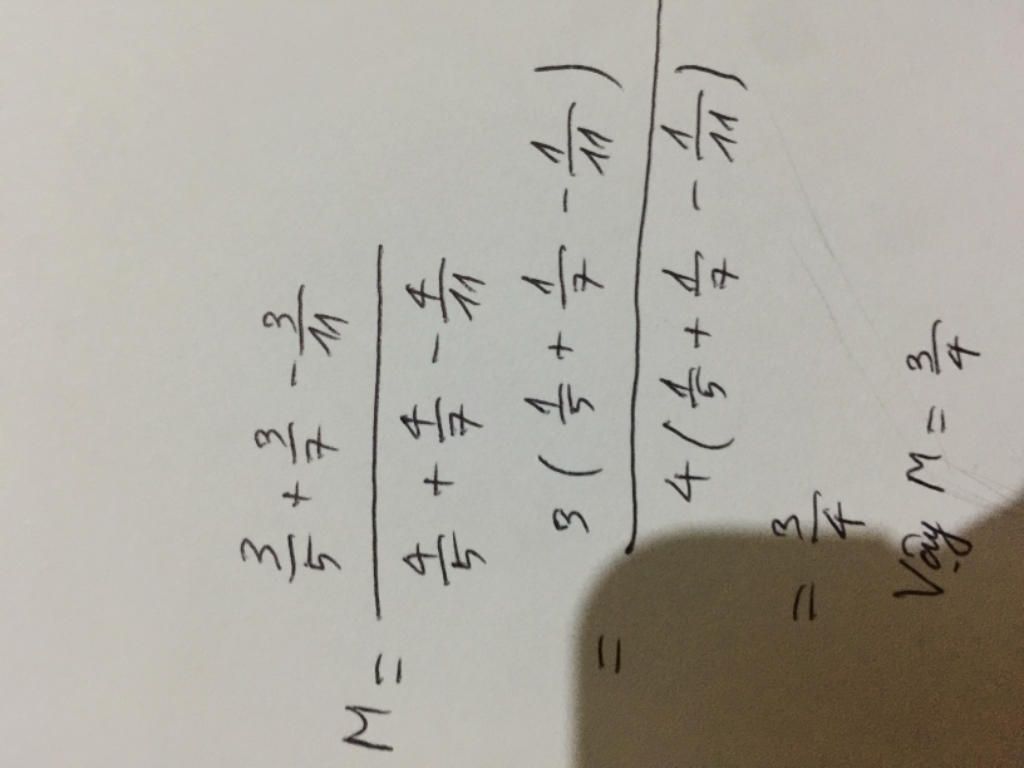 M = (3/5 + 3/7 - 3/11) / (4/5 + 4/7 - 4/11)
= 3(1/5 + 1/7 - 1/11) / 4(1/5 + 1/7 - 1/11)
= 3/4
Vậy M = 3/4